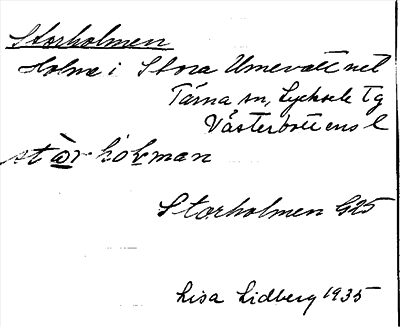 Storholmen
Holme i Stora Umevattnet
Tärna sn, Lycksele tg
Västerbottens l
stàrhòḷman
Storholmen G25
Lisa Lidberg 1935